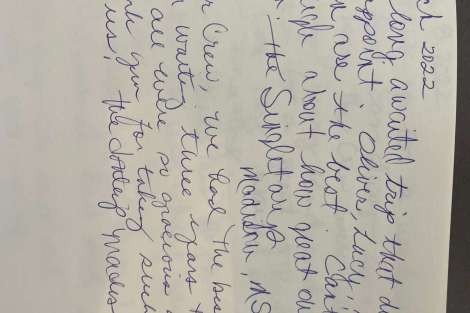 ch 2022
long awaited trip that d
ppoint. Oliver, Lucy,
n are the best. Can't
ugh about how great ou
. The Singletarys
Madison, MS
r Crew, we had the bes
waiting three years t
all were so gracious
nk you for taking such
us! The Madis